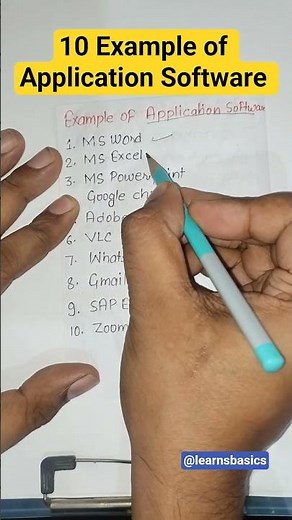 10 Example of
Application Software
Example of Application Software
1. MS Word
2. MS Excel
3. MS PowerPoint
Google ch
Adobe
6. VLC
7. Whats
8. Gmail
9. SAP E
10. Zoom
@learnsbasics